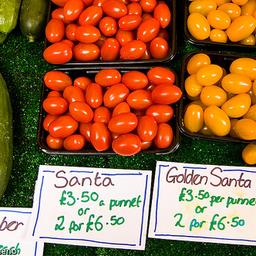 Santa
£3.50 a punnet
or
2 for £6.50
Golden Santa
£3.50 per punnet
or
2 for £6.50